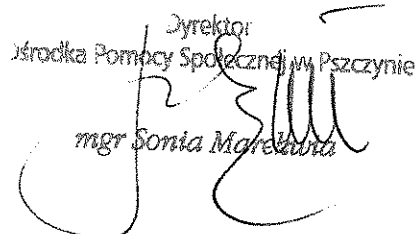 Dyrektor
Ośrodka Pomocy Społecznej w Pszczynie
mgr Sonia